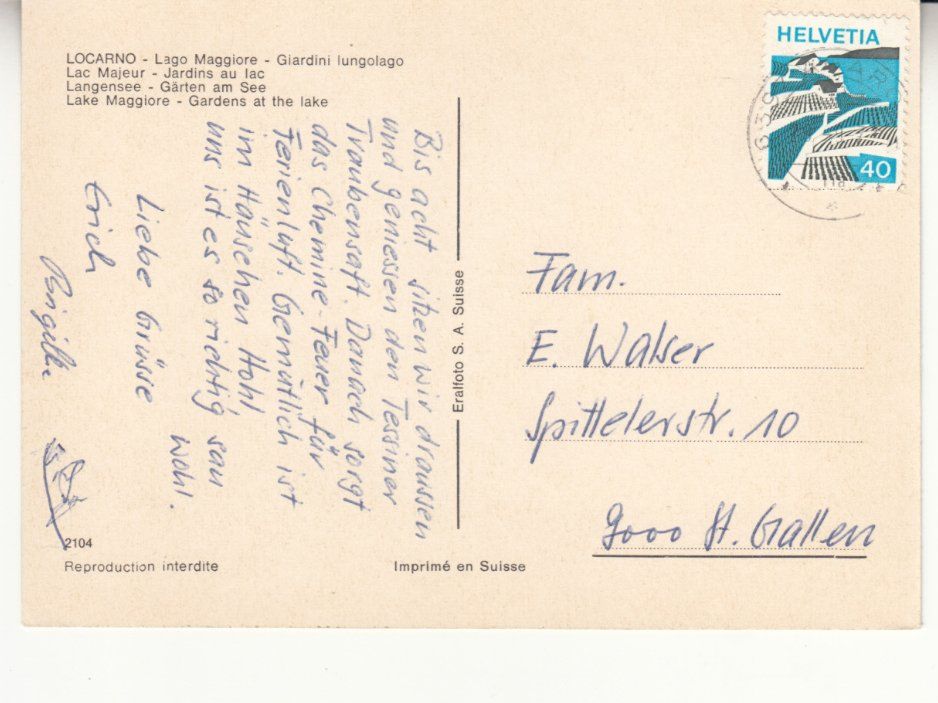 LOCARNO - Lago Maggiore - Giardini lungolago
Lac Majeur - Jardins au lac
Langensee - Gärten am See
Lake Maggiore - Gardens at the lake
Bis acht sitzen wir draussen
und geniessen den Tessiner
Traubensaft. Danach sorgt
das Chemine-Feuer für
Ferienluft. Gemütlich ist
im Häuschen
uns ist es so richtig sau
wohl.
Liebe Grüsse
Erich
Eralfoto S. A. Suisse
HELVETIA
40
Fam.
E. Walser
Spittelerstr. 10
9000 St. Gallen
2104
Reproduction interdite
Imprimé en Suisse